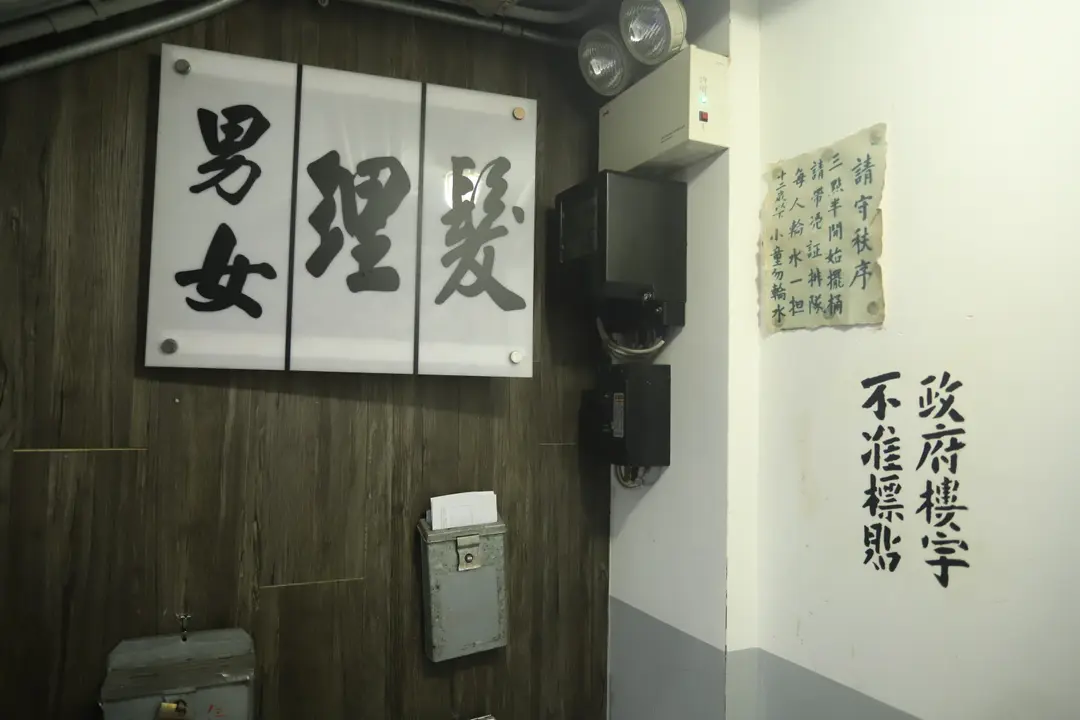 男女
理
髮
請守秩序
三點半開始擺桶
請帶憑証排隊
每人輪水一担
十二歲以下小童勿輪水
政府樓宇
不准標貼